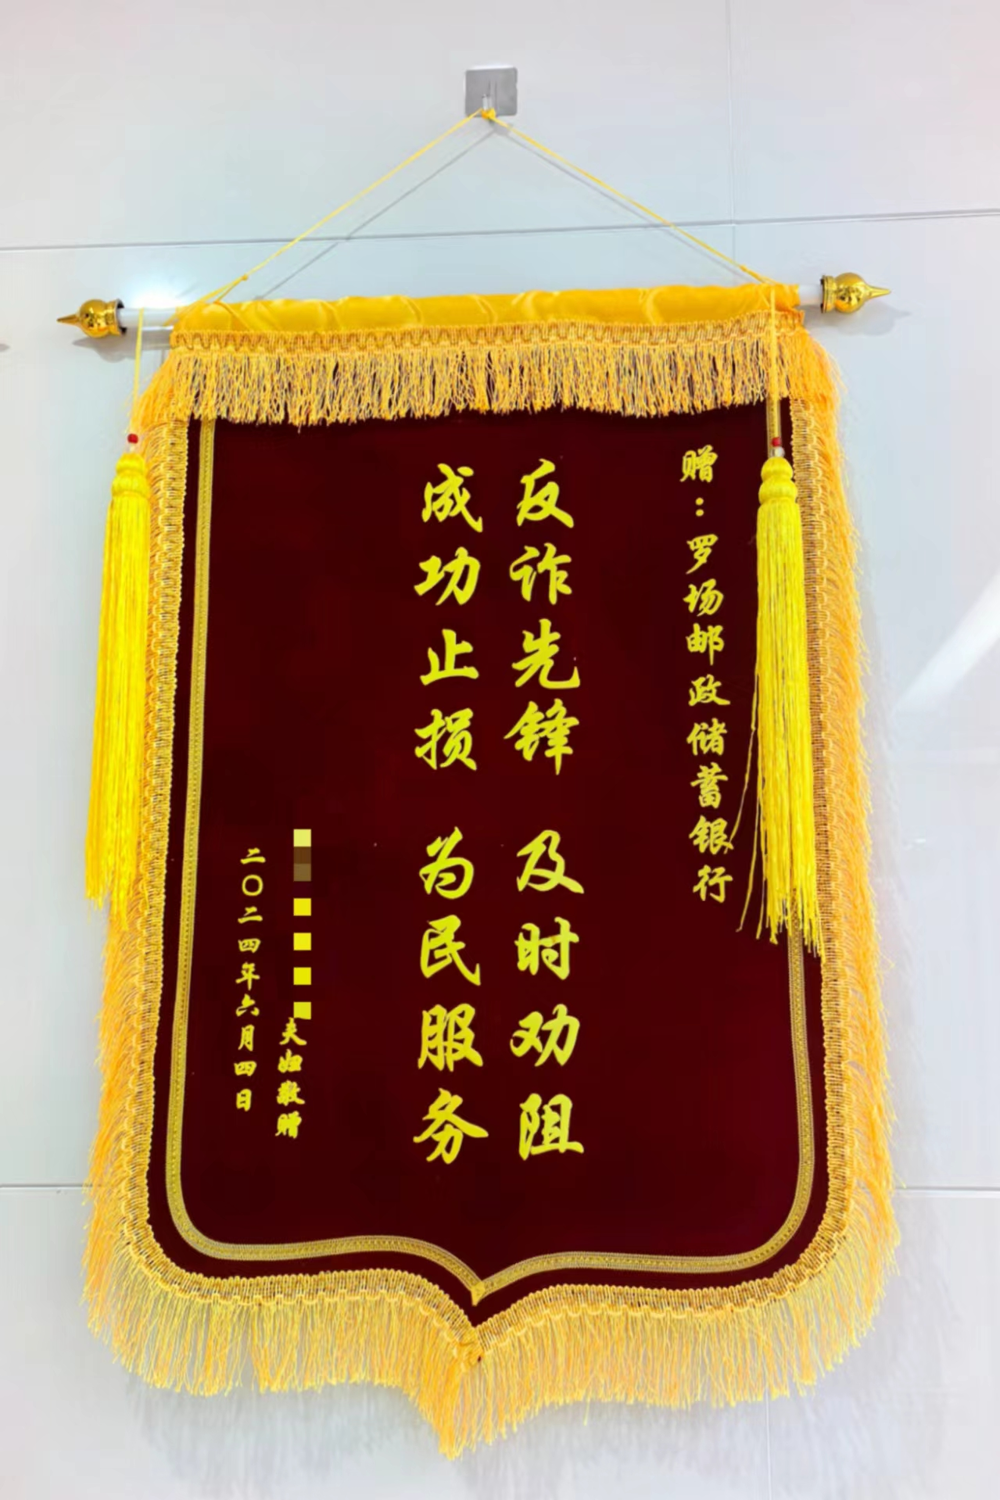 赠：罗场邮政储蓄银行
反诈先锋 及时劝阻
成功止损 为民服务
夫妇敬赠
二〇二四年六月四日